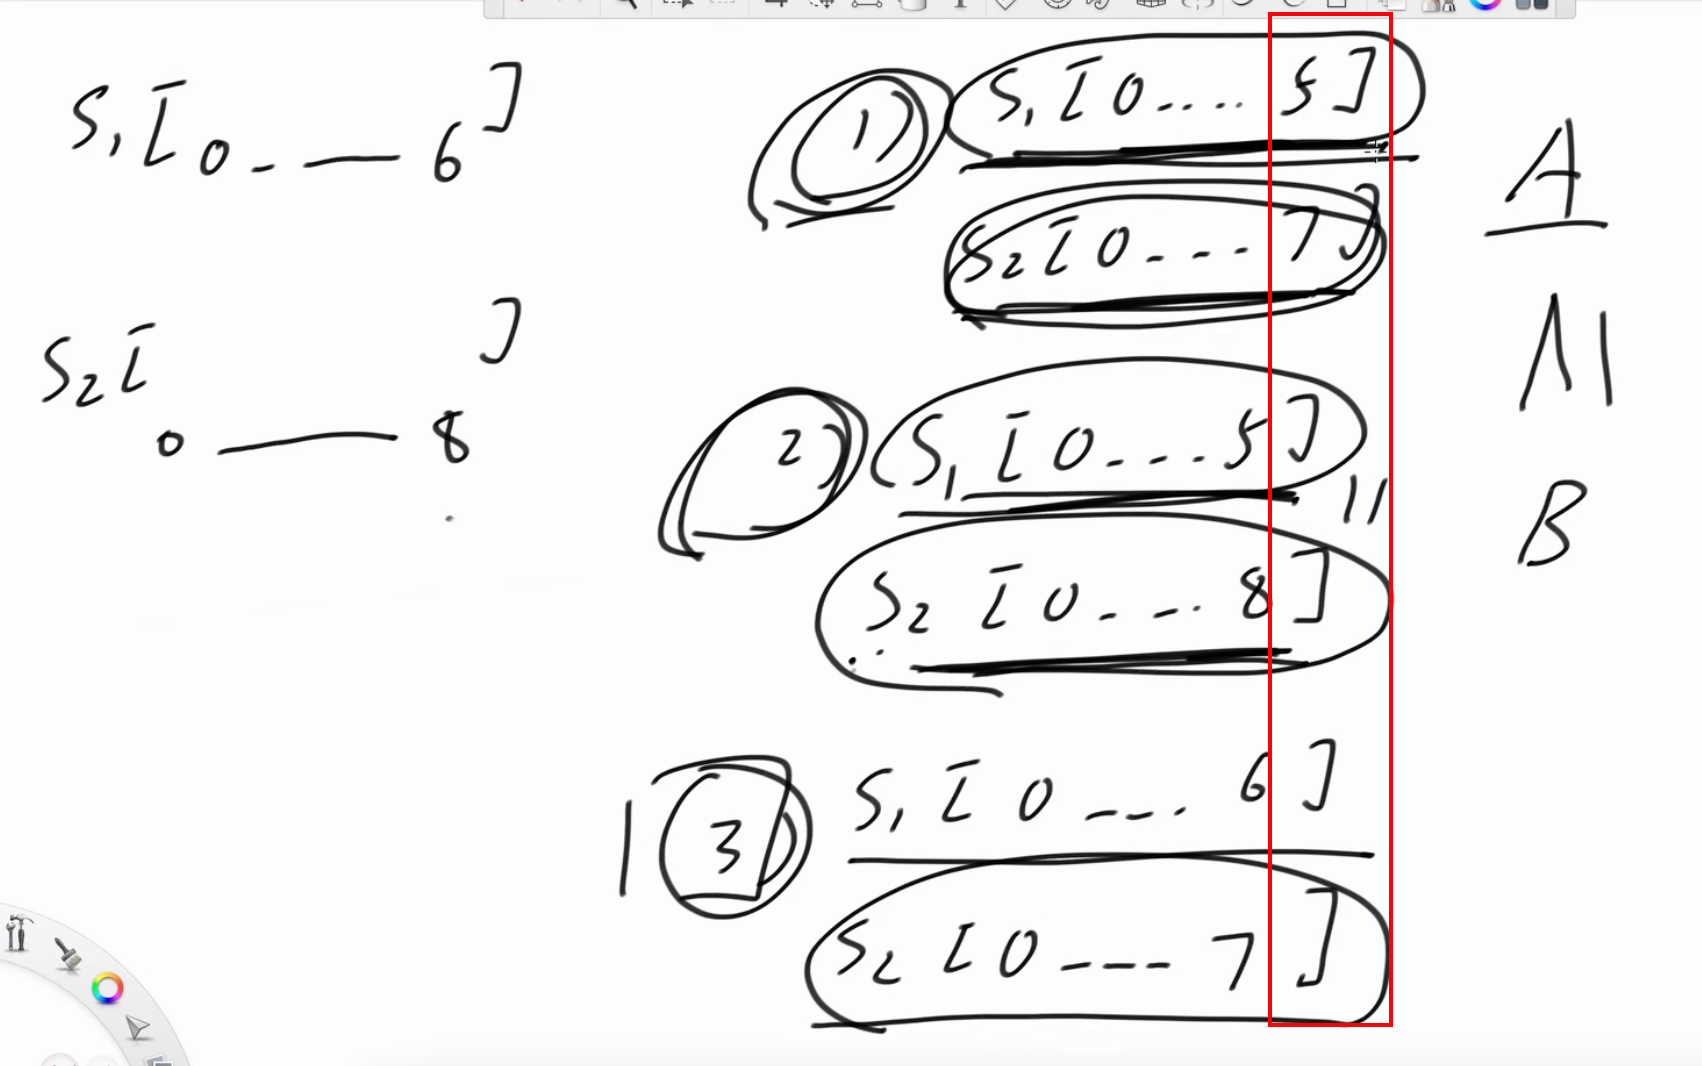 S1[0 - — 6]
S2[0 — 8]
1) S1[0.... 5]
S2[0 - - - 7]
2) S1[0 - - - 5]
11
S2[0 - - . 8]
1 3) S1[0 - - . 6]
S2[0 - - - 7]
A
B